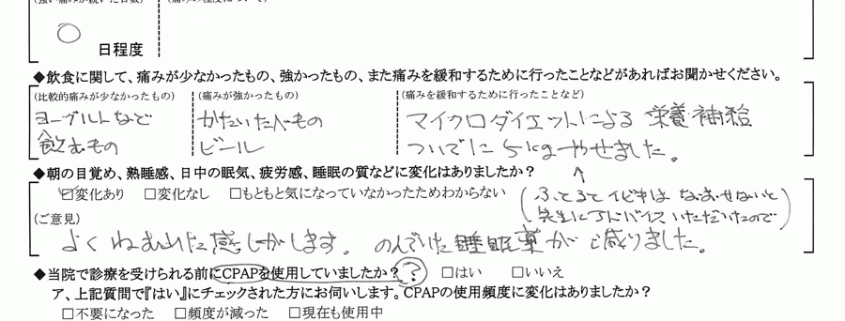 (強い痛みが続いた日数)
○ 日程度
◆飲食に関して、痛みが少なかったもの、強かったもの、また痛みを緩和するために行ったことなどがあればお聞かせください。
(比較的痛みが少なかったもの) (痛みが強かったもの) (痛みを緩和するために行ったことなど)
ヨーグルトなど かたいたべもの マイクロダイエットによる 栄養補給
飲むもの ビール ついでに 5kgやせました。
◆朝の目覚め、熟睡感、日中の眠気、疲労感、睡眠の質などに変化はありましたか?
☑変化あり □変化なし □もともと気になっていなかったためわからない
(ふとるとイビキは なおせないと
先生にアドバイスいただいたので)
(ご意見)
よくねむれた感じがします。 のんでいた睡眠薬が減りました。
◆当院で診療を受けられる前にCPAPを使用していましたか? ? □はい □いいえ
ア、上記質問で『はい』にチェックされた方にお伺いします。CPAPの使用頻度に変化はありましたか?
□不要になった □頻度が減った □現在も使用中